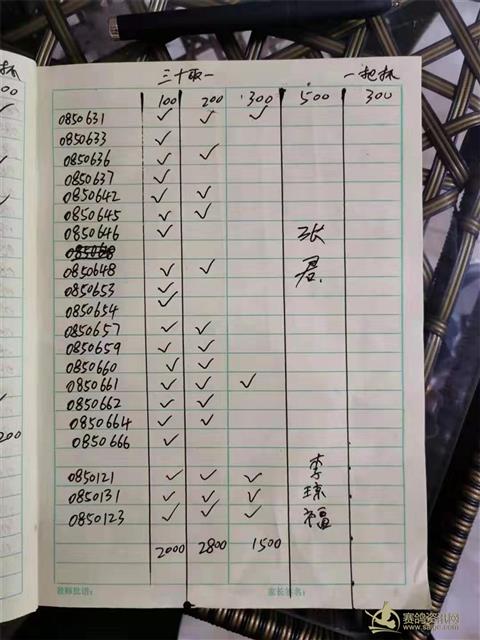 三十取一 一把抓
100 200 300 500 300
0850631 ✓ ✓ ✓
0850633 ✓
0850636 ✓ ✓
0850637 ✓
0850642 ✓ ✓
0850645 ✓ ✓
0850646 ✓
0850648 ✓ ✓
0850653 ✓
0850654 ✓
0850657 ✓ ✓
0850659 ✓ ✓
0850660 ✓ ✓
0850661 ✓ ✓ ✓
0850662 ✓ ✓
0850664 ✓ ✓
0850666 ✓
张
君
0850121 ✓ ✓ ✓
0850131 ✓ ✓ ✓
0850123 ✓ ✓ ✓
李
琼
福
2000 2800 1500
教师批语： 家长签名：
赛鸽资讯网
www.saige.com